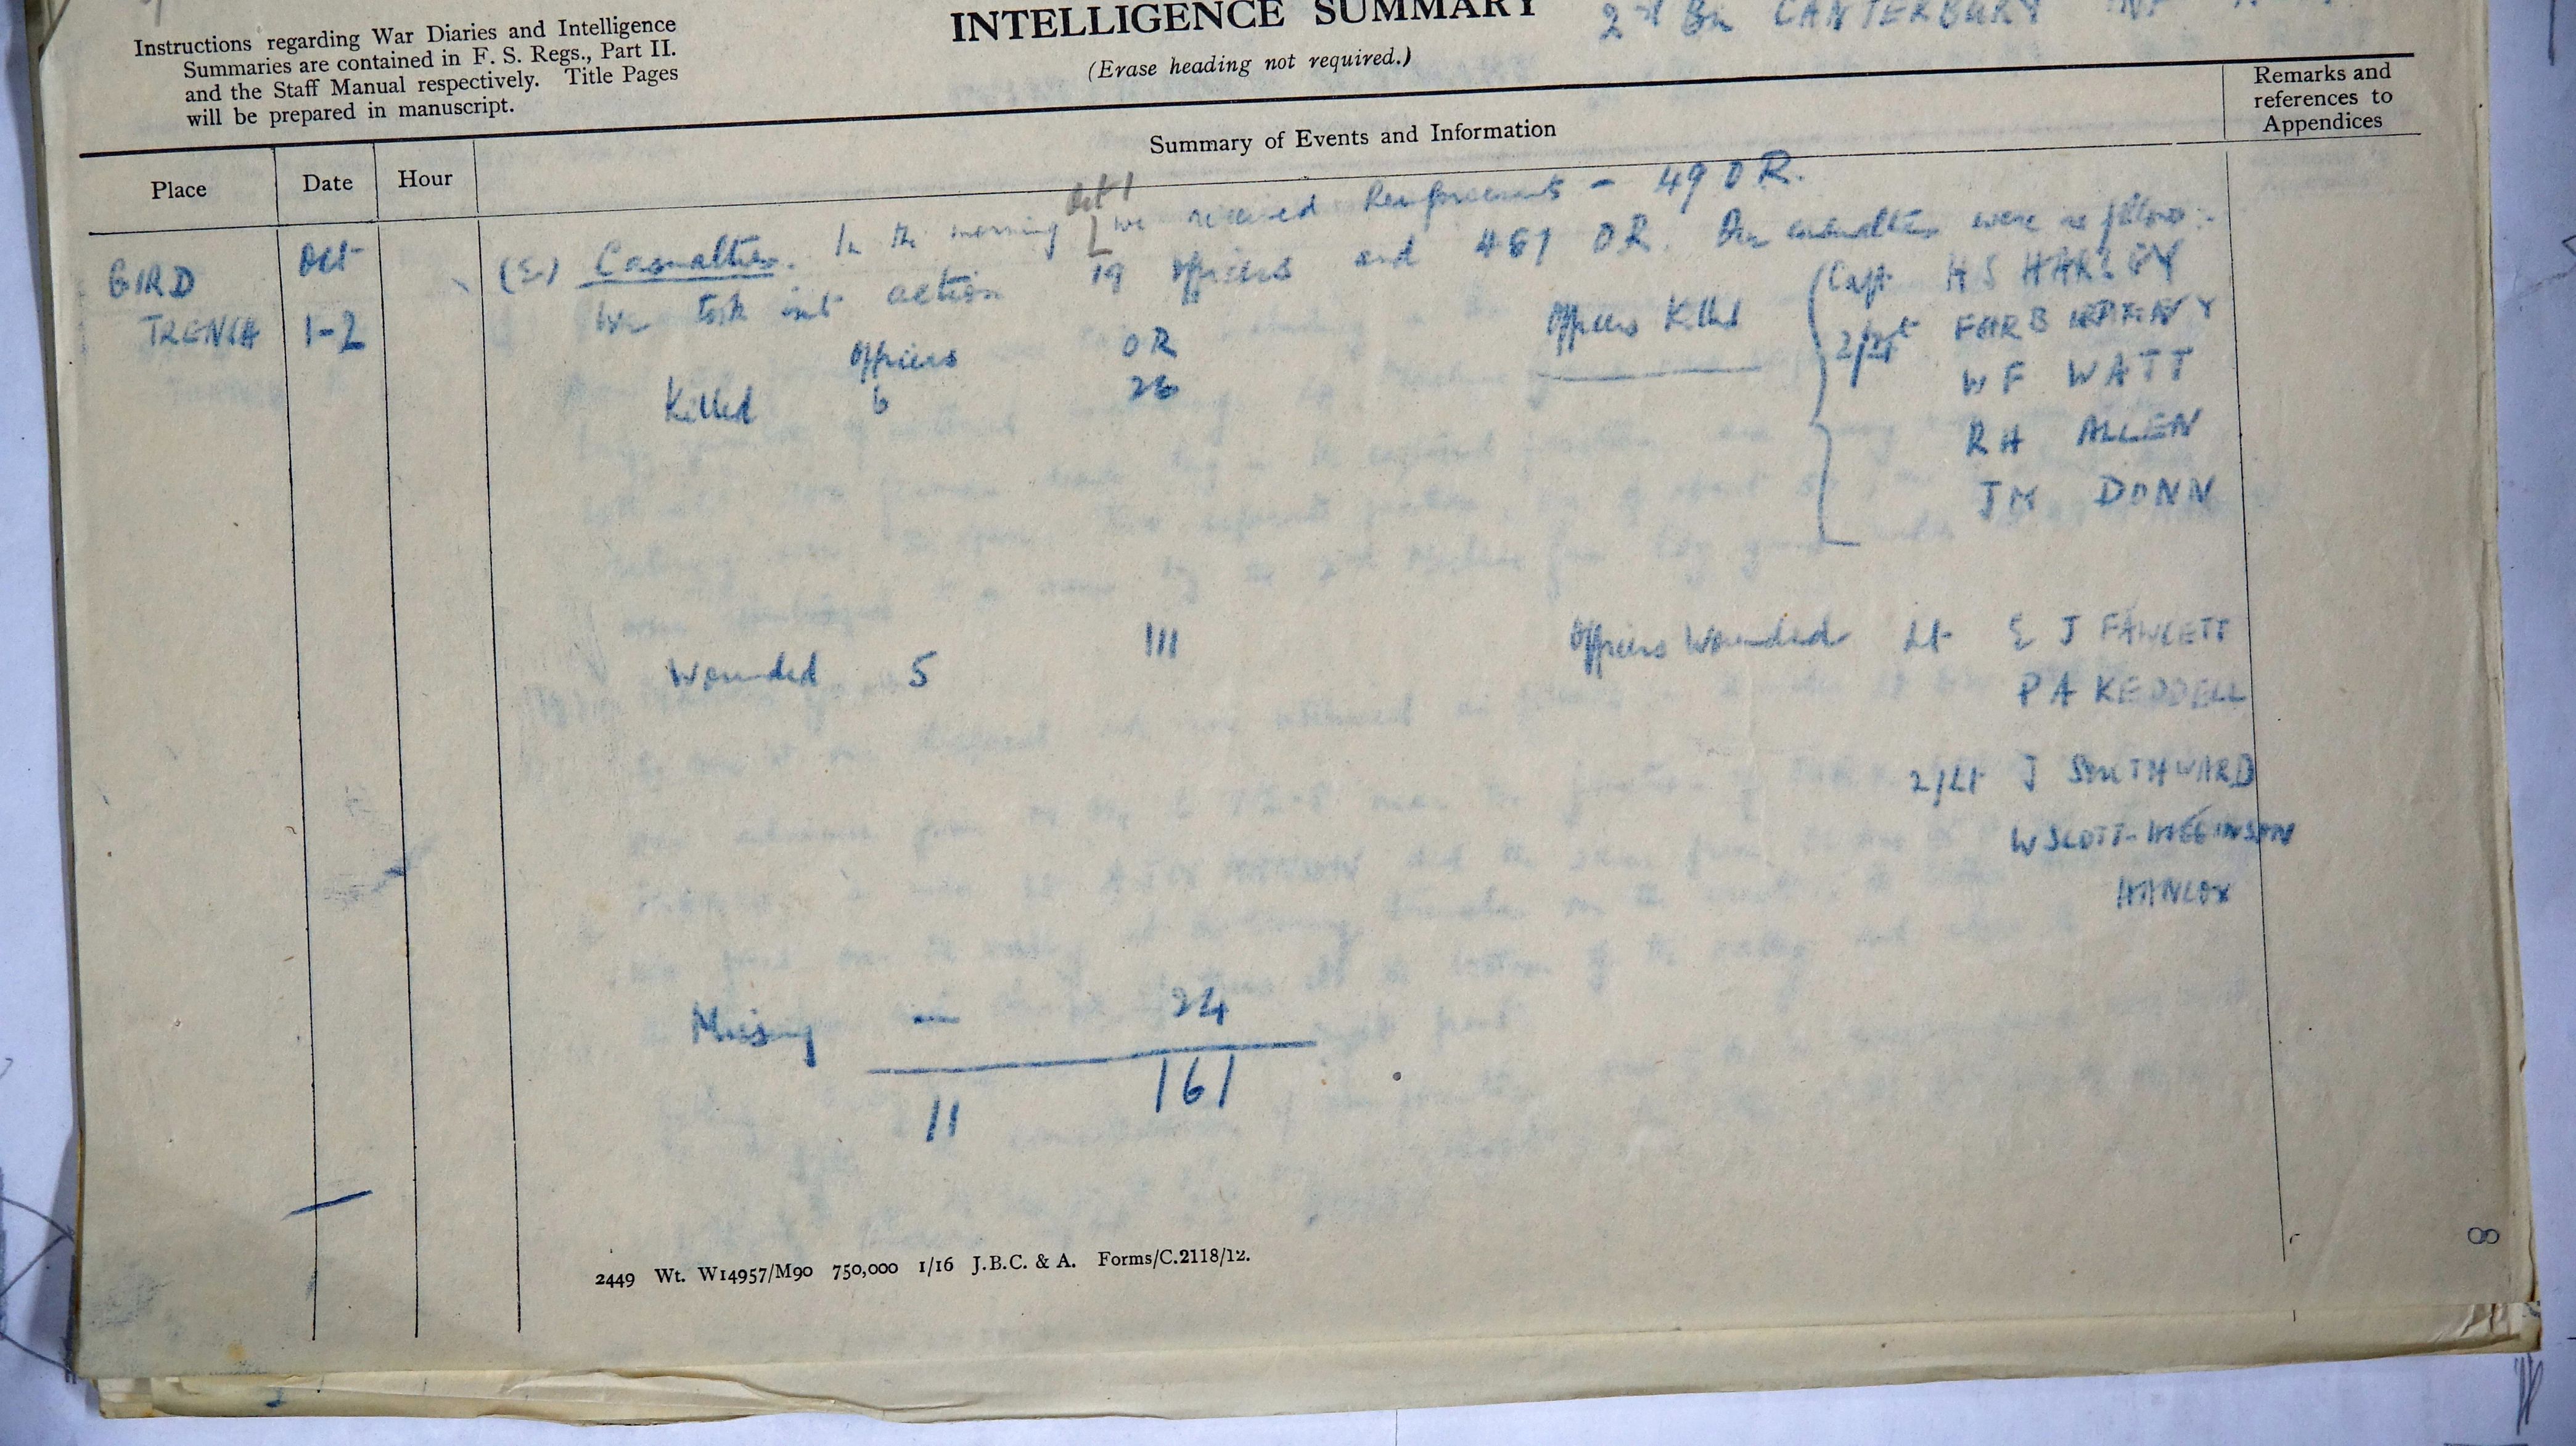 INTELLIGENCE SUMMARY
2nd Bn CANTERBURY INF
Instructions regarding War Diaries and Intelligence
Summaries are contained in F. S. Regs., Part II.
and the Staff Manual respectively. Title Pages
will be prepared in manuscript.
(Erase heading not required.)
Remarks and
references to
Appendices
Summary of Events and Information
Place Date Hour
GIRD Oct
TRENCH 1-2
Oct 1
(E) Casualties. In the morning we received Reinforcements - 49 OR.
We took into action 19 Officers and 461 OR. Our casualties were as follows:-
Officers OR
Killed 6 26
Officers Killed
Capt H S HARLEY
2/Lt
W F WATT
R H ALLEN
J M DONN
Wounded 5 111
Officers Wounded Lt E J FAWCETT
P A KEDDELL
2/Lt J SOUTHWARD
W SCOTT-HIGGINSON
HANCOX
Missing — 24
11 161
2449 Wt. W14957/M90 750,000 1/16 J.B.C. & A. Forms/C.2118/12.
8